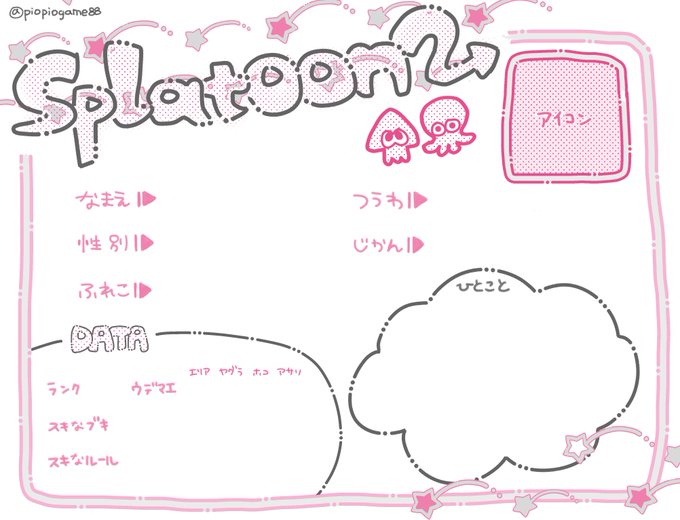 @piopiogame88
Splatoon2
アイコン
なまえ
つうわ
性別
じかん
ふれこ
ひとこと
DATA
エリア ヤグラ ホコ アサリ
ランク ウデマエ
スキなブキ
スキなルール